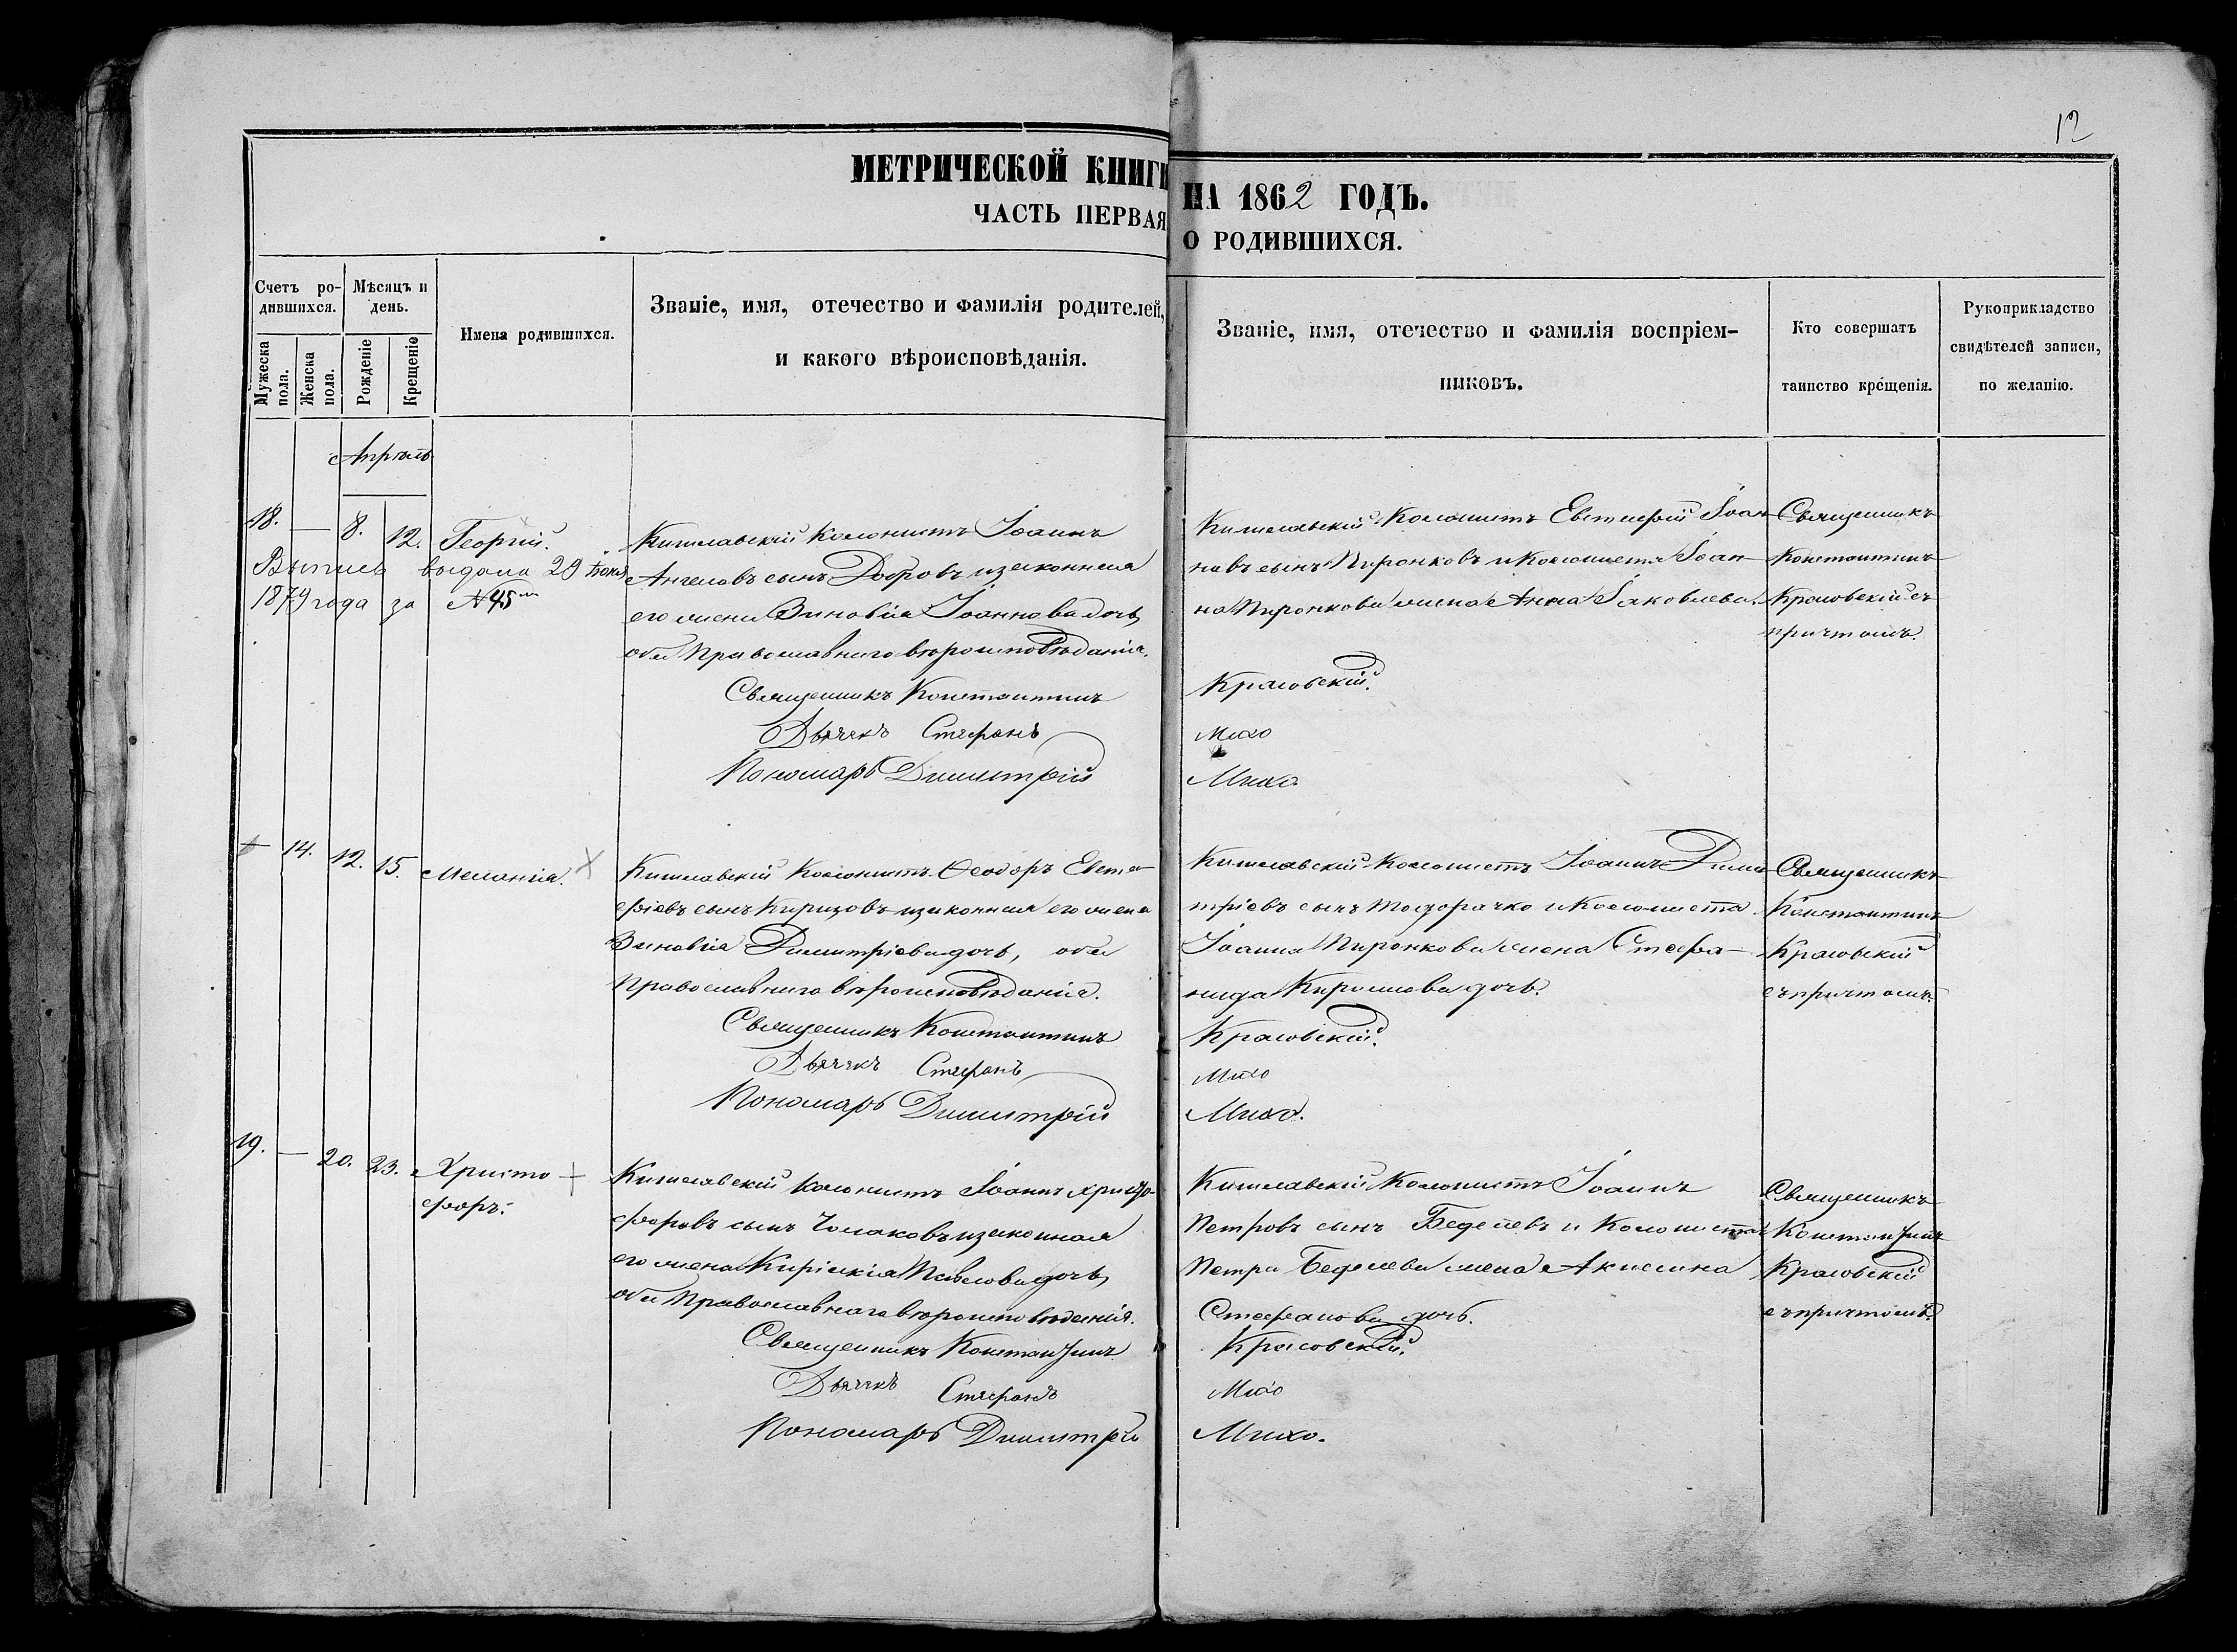 12
МЕТРИЧЕСКОЙ КНИГИ НА 1862 ГОДЪ.
ЧАСТЬ ПЕРВАЯ О РОДИВШИХСЯ.
Счетъ родившихся.
Мужеска пола.
Женска пола.
Мѣсяцъ и день.
Рожденіе
Крещеніе
Имена родившихся.
Званіе, имя, отечество и фамилія родителей,
и какого вѣроисповѣданія.
Званіе, имя, отечество и фамилія воспріем-
никовъ.
Кто совершатъ
таинство крещенія.
Рукоприкладство
свидѣтелей записи,
по желанію.
Апрѣль
18. — 8. 12. Георгій.
Выпись выдана 29 Іюня
1879 года за №45
Кишлавскій колонистъ Іоаннъ
Ангеловъ сынъ Добровъ изаконная
его жена Зиновія Іоаннова дочь,
оба Православнаго вѣроисповѣданія.
Священникъ Константинъ
Дьячекъ Стефанъ
Пономарь Димитрій
Кишлавскій Колонистъ Евтефій Іоан-
новъ сынъ Пиронковъ и Колониста Іоан-
на Пиронкова жена Анна Іаковлева.
Красовскій.
Михо
Михо.
Священникъ
Константинъ
Красовскій съ
причтомъ.
— 14. 12. 15. Меланія.
Кишлавскій Колонистъ Ѳеодоръ Евте-
фіевъ сынъ Киризовъ изаконная его жена
Зиновія Димитріева дочь, оба
Православнаго вѣроисповѣданія.
Священникъ Константинъ
Дьячекъ Стефанъ
Пономарь Димитрій
Кишлавскій Колонистъ Іоаннъ Дими-
тріевъ сынъ Тодорачко и Колониста
Іоанна Пиронкова жена Стефа-
нида Кириллова дочь.
Красовскій.
Михо
Михо.
Священникъ
Константинъ
Красовскій
съ причтомъ.
19. — 20. 23. Христо-
форъ.
Кишлавскій колонистъ Іоаннъ Христо-
форовъ сынъ Чолаковъ изаконная
его жена Киріакія Павлова дочь,
оба Православнаго вѣроисповѣданія.
Священникъ Константинъ
Дьячекъ Стефанъ
Пономарь Димитрій
Кишлавскій Колонистъ Іоаннъ
Петровъ сынъ Беделевъ и Колониста
Петра Беделева жена Акилина
Стефанова дочь.
Красовскій.
Михо
Михо.
Священникъ
Константинъ
Красовскій
съ причтомъ.